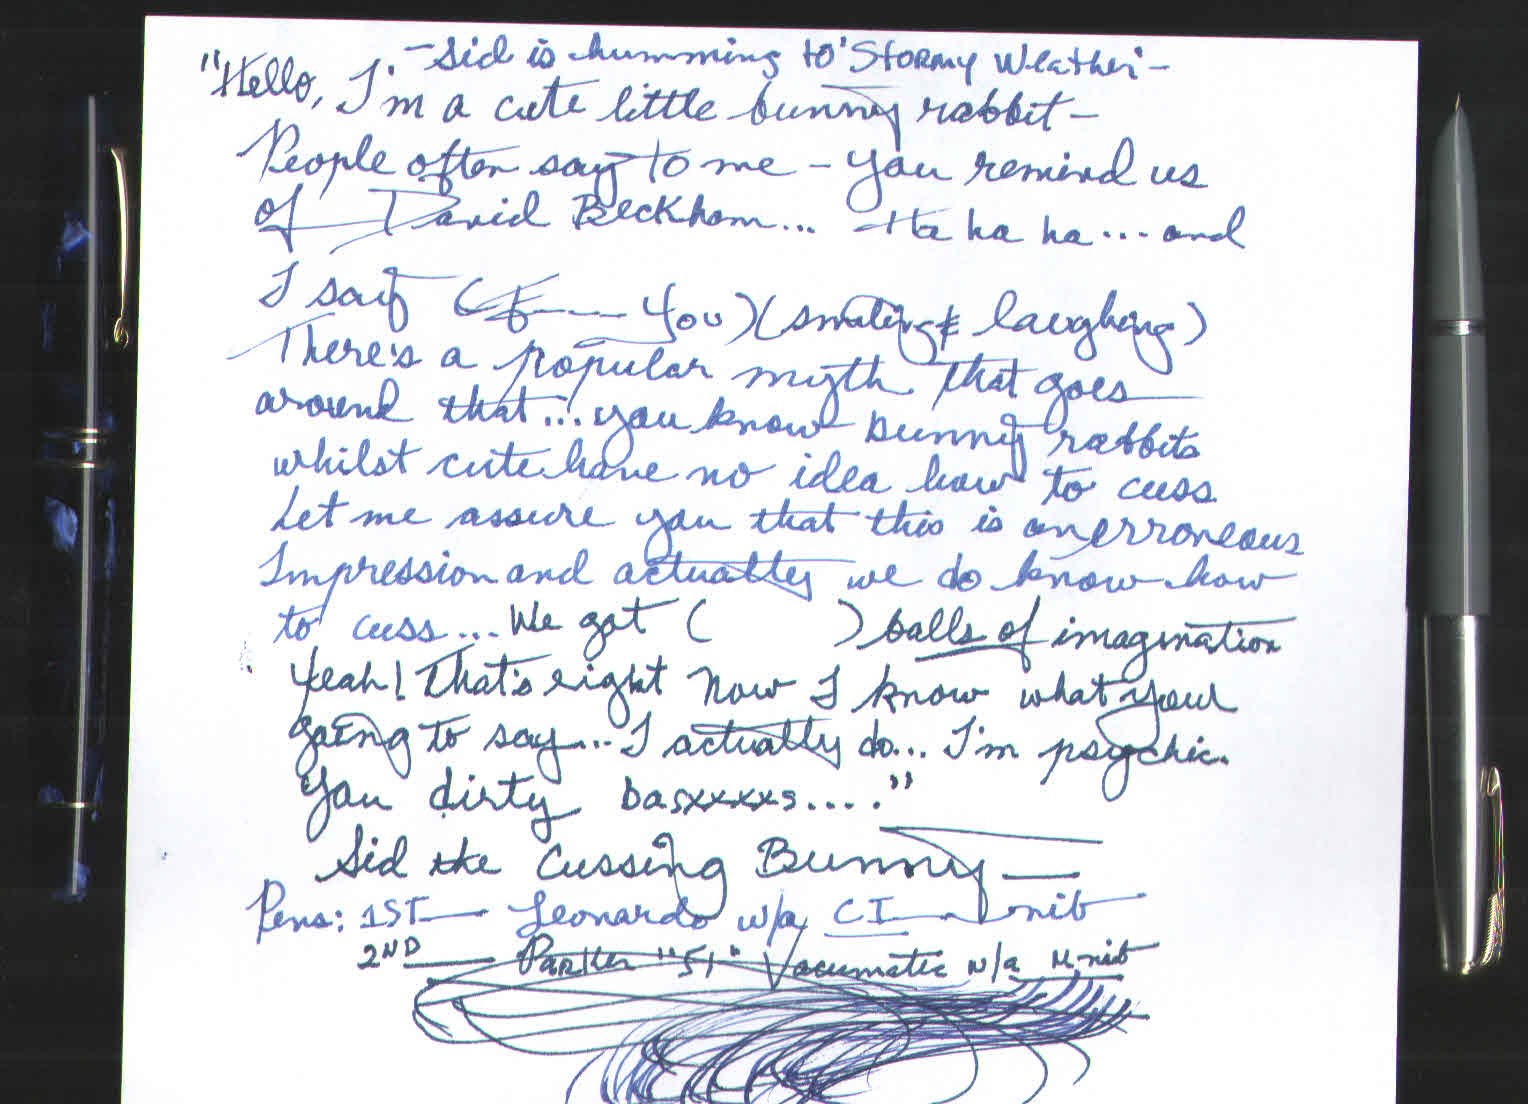 -Sid is humming to 'Stormy Weather'-
"Hello, I'm a cute little bunny rabbit-
People often say to me - you remind us
of David Beckham... Ha ha ha... and
I say (F---- You) (smiling & laughing)
There's a popular myth that goes
around that... you know bunny rabbits
whilst cute have no idea how to cuss.
Let me assure you that this is an erroneous
Impression and actually we do know how
to cuss... We got (          ) balls of imagination
Yeah! That's right now I know what your
going to say... I actually do... I'm psychic.
You dirty basxxxxs...."
Sid the Cussing Bunny—
Pens: 1ST— Leonardo w/a CI— nib
2ND— Parker "51" Vacumatic w/a M-nib